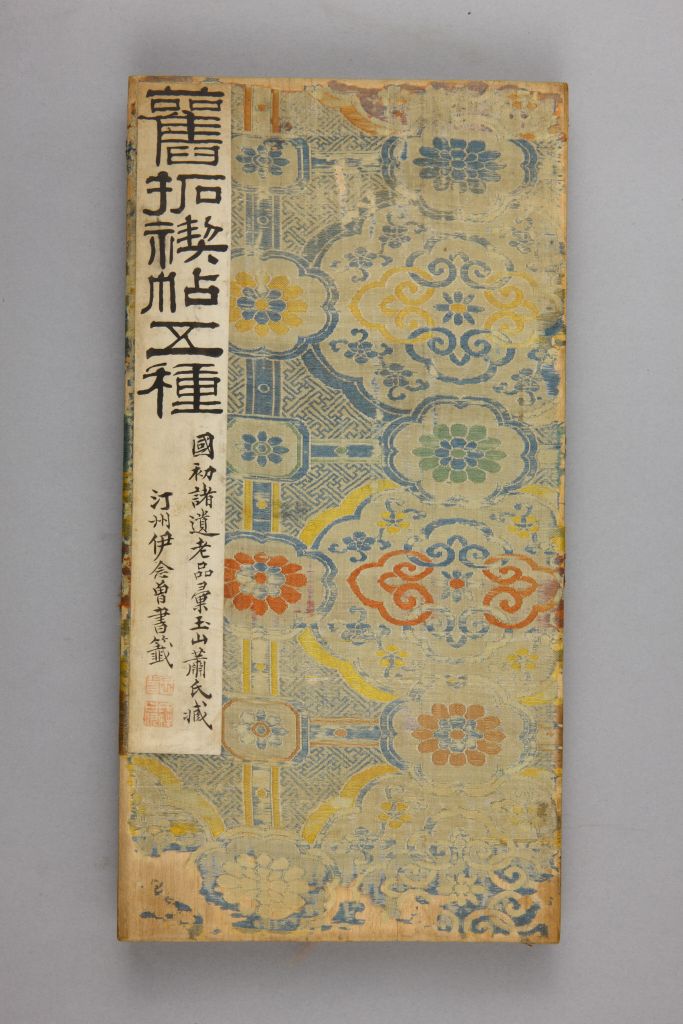 舊拓禊帖五種
國初諸遺老品彙玉山蕭氏藏
汀州伊念曾書籤